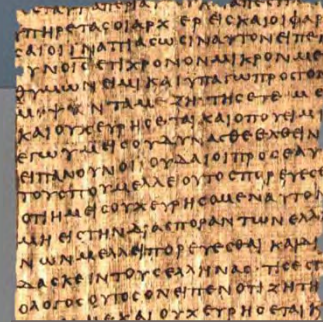 ΥΠΗΡΕΤΑϹΟΙΑΡΧΕΡΕΙϹΚΑΙΟΙΦΑΡ
ϹΑΙΟΙΙΝΑΠΙΑϹΩϹΙΝΑΥΤΟΝΕΙΠΕ
ΥΝΟΙϹΕΤΙΧΡΟΝΟΝΜΙΚΡΟΝΜΕ
ΘΥΜΩΝΕΙΜΙΚΑΙΥΠΑΓΩΠΡΟϹΤΟ
ΝΤΑΜΕΖΗΤΗϹΕΤΕΜΕ
ΚΑΙΟΥΧΕΥΡΗϹΕΤΑΙΚΑΙΟΠΟΥΕΙΜΙ
ΕΓΩΥΜΕΙϹΟΥΔΥΝΑϹΘΕΕΛΘΕΙΝ
ΕΙΠΑΝΟΥΝΟΙΙΟΥΔΑΙΟΙΠΡΟϹΕΑΥ
ΤΟΥϹΠΟΥΜΕΛΛΕΙΟΥΤΟϹΠΟΡΕΥΕϹΘ
ΟΤΙΗΜΕΙϹΟΥΧΕΥΡΗϹΟΜΕΝΑΥΤΟ
ΜΗΕΙϹΤΗΝΔΙΑϹΠΟΡΑΝΤΩΝΕΛΛΗ
ΝΩΝΜΕΛΛΕΙΠΟΡΕΥΕϹΘΑΙΚΑΙΔΙ
ΔΑϹΚΕΙΝΤΟΥϹΕΛΛΗΝΑϹ·ΤΙϹΕϹΤ
ΟΛΟΓΟϹΟΥΤΟϹΟΝΕΙΠΕΝΟΤΙΖΗΤΗ
ΚΑΙΟΥΧΕΥΡΗϹΕΤΑΙ